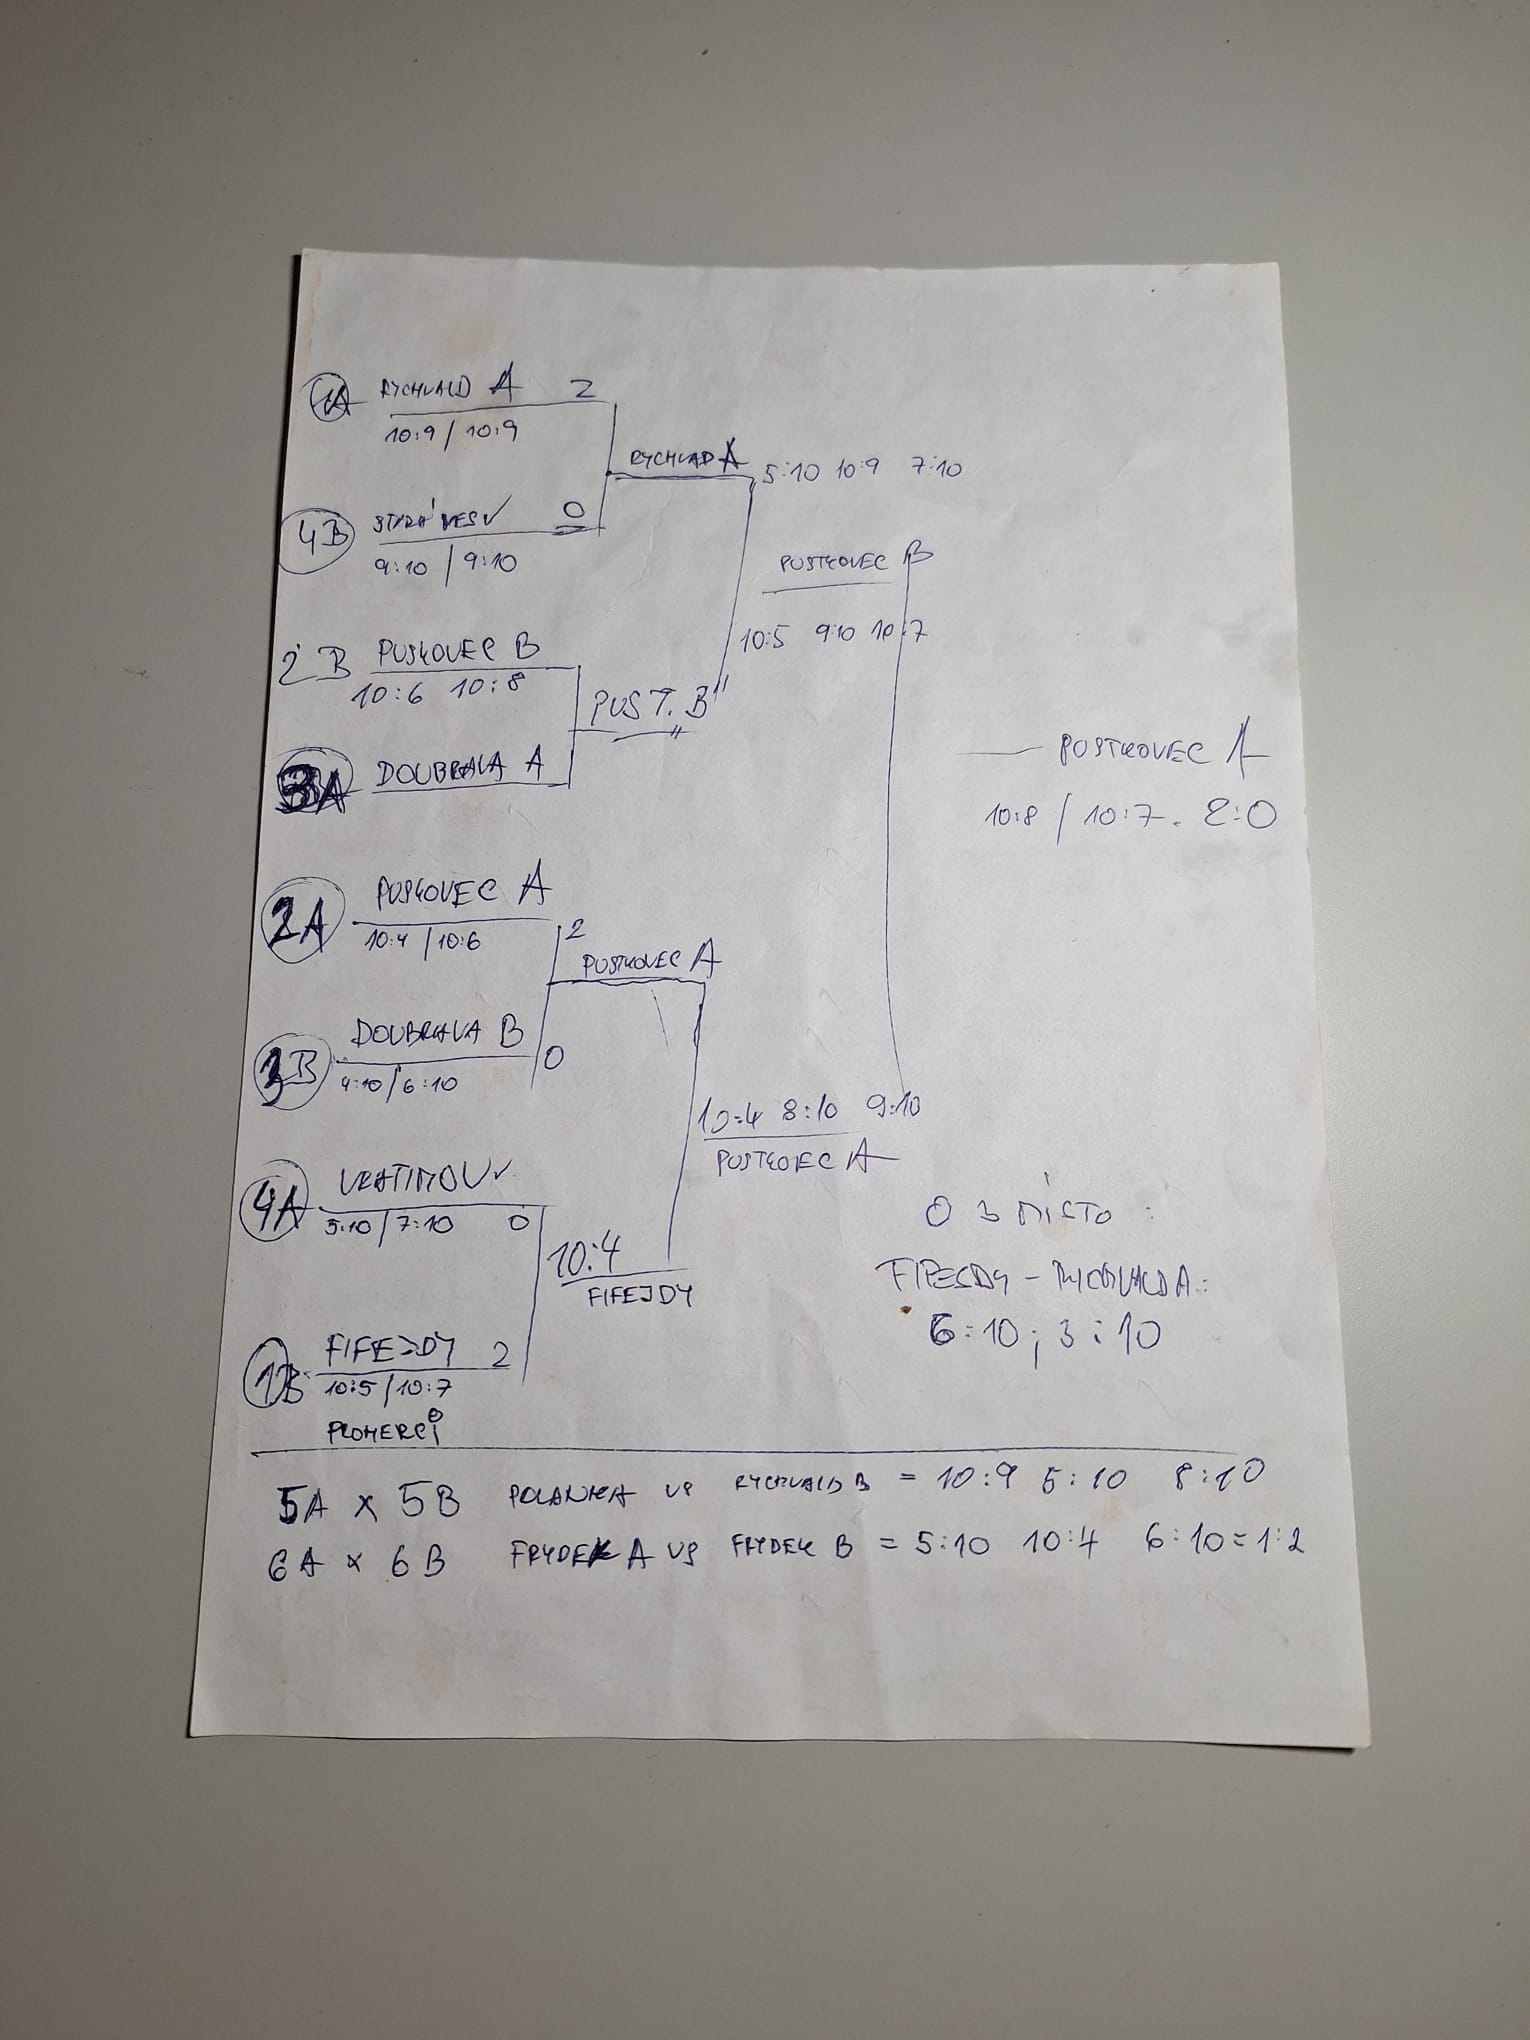 1A RYCHVALD A 2
10:9 / 10:9
RYCHVAD A 5:10 10:9 7:10
4B STARÁ VES 0
9:10 / 9:10
PUSTKOVEC B
10:5 9:10 10:7
2B PUSKOVEC B
10:6 10:8
PUST. B"
3A DOUBRAVA A
POSTKOVEC A
10:8 / 10:7. 2:0
2A PUSKOVEC A
10:4 / 10:6 2
PUSTKOVEC A
DOUBRAVA B
3B 4:10 / 6:10 0
10:4 8:10 9:10
PUSTKOVEC A
4A VRATIMOV
5:10 / 7:10 0
10:4
FIFEJDY
O 3 MÍSTO :
FIFEJDY - RYCHVALD A:
6:10; 3:10
1B FIFEJDY 2
10:5 / 10:7
PLOMERCI
5A x 5B POLANKA vs RYCHVALD B = 10:9 5:10 8:10
6A x 6B FRYDEK A vs FRYDEK B = 5:10 10:4 6:10 = 1:2